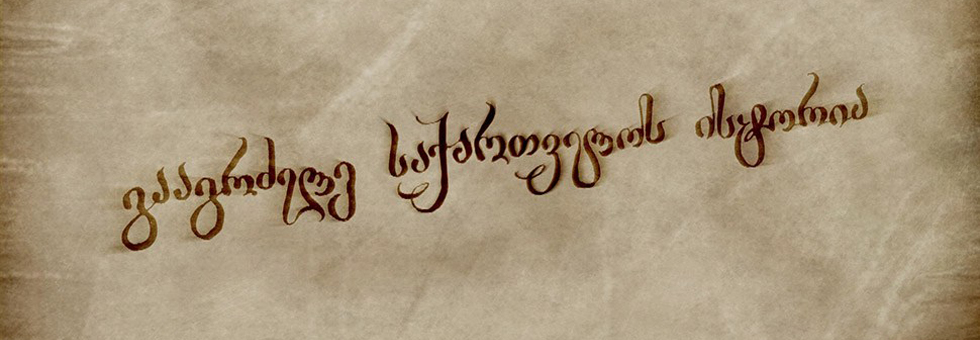 გააგრძელე საქართველოს ისტორია